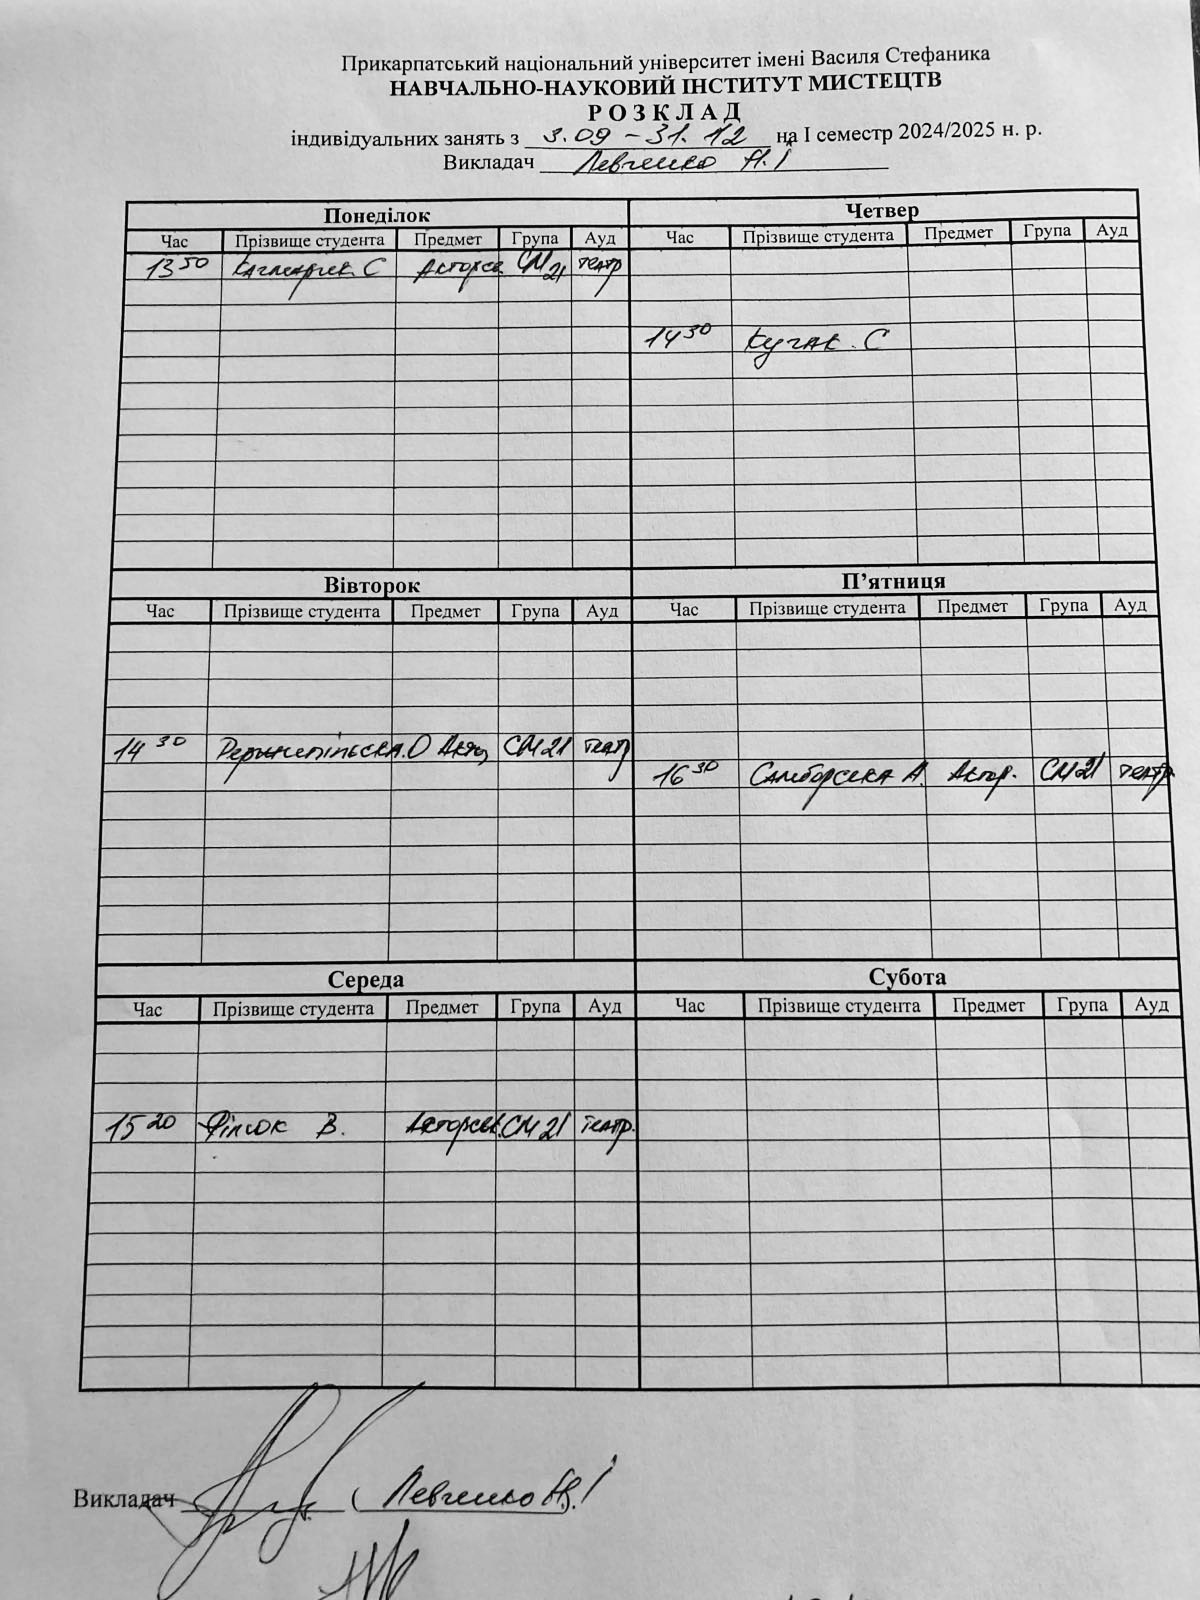 Прикарпатський національний університет імені Василя Стефаника
НАВЧАЛЬНО-НАУКОВИЙ ІНСТИТУТ МИСТЕЦТВ
Р О З К Л А Д
індивідуальних занять з 3.09 – 31.12 на І семестр 2024/2025 н. р.
Викладач Левченко
Понеділок
Час Прізвище студента Предмет Група Ауд
13 50 С СМ 21 театр
Четвер
Час Прізвище студента Предмет Група Ауд
14 30 Кучак. С
Вівторок
Час Прізвище студента Предмет Група Ауд
14 30 О СМ 21 театр
П’ятниця
Час Прізвище студента Предмет Група Ауд
16 30 Самборська А. Актор. СМ 21 театр.
Середа
Час Прізвище студента Предмет Група Ауд
15 20 В. СМ 21 театр.
Субота
Час Прізвище студента Предмет Група Ауд
Викладач ( Левченко